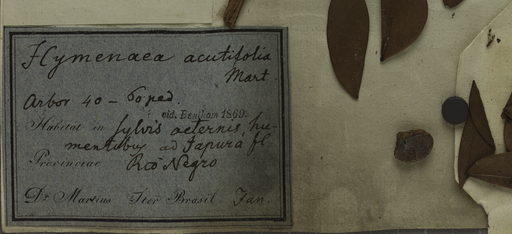 Hymenaea acutifolia
Mart.
Arbor 40 – 60 ped.
vid. Bentham 1869.
Habitat in sylvis aeternis, hu-
mentibus ad Japurá fl.
Provinciae Rio Negro
Dr. Martius Iter Brasil. Jan.